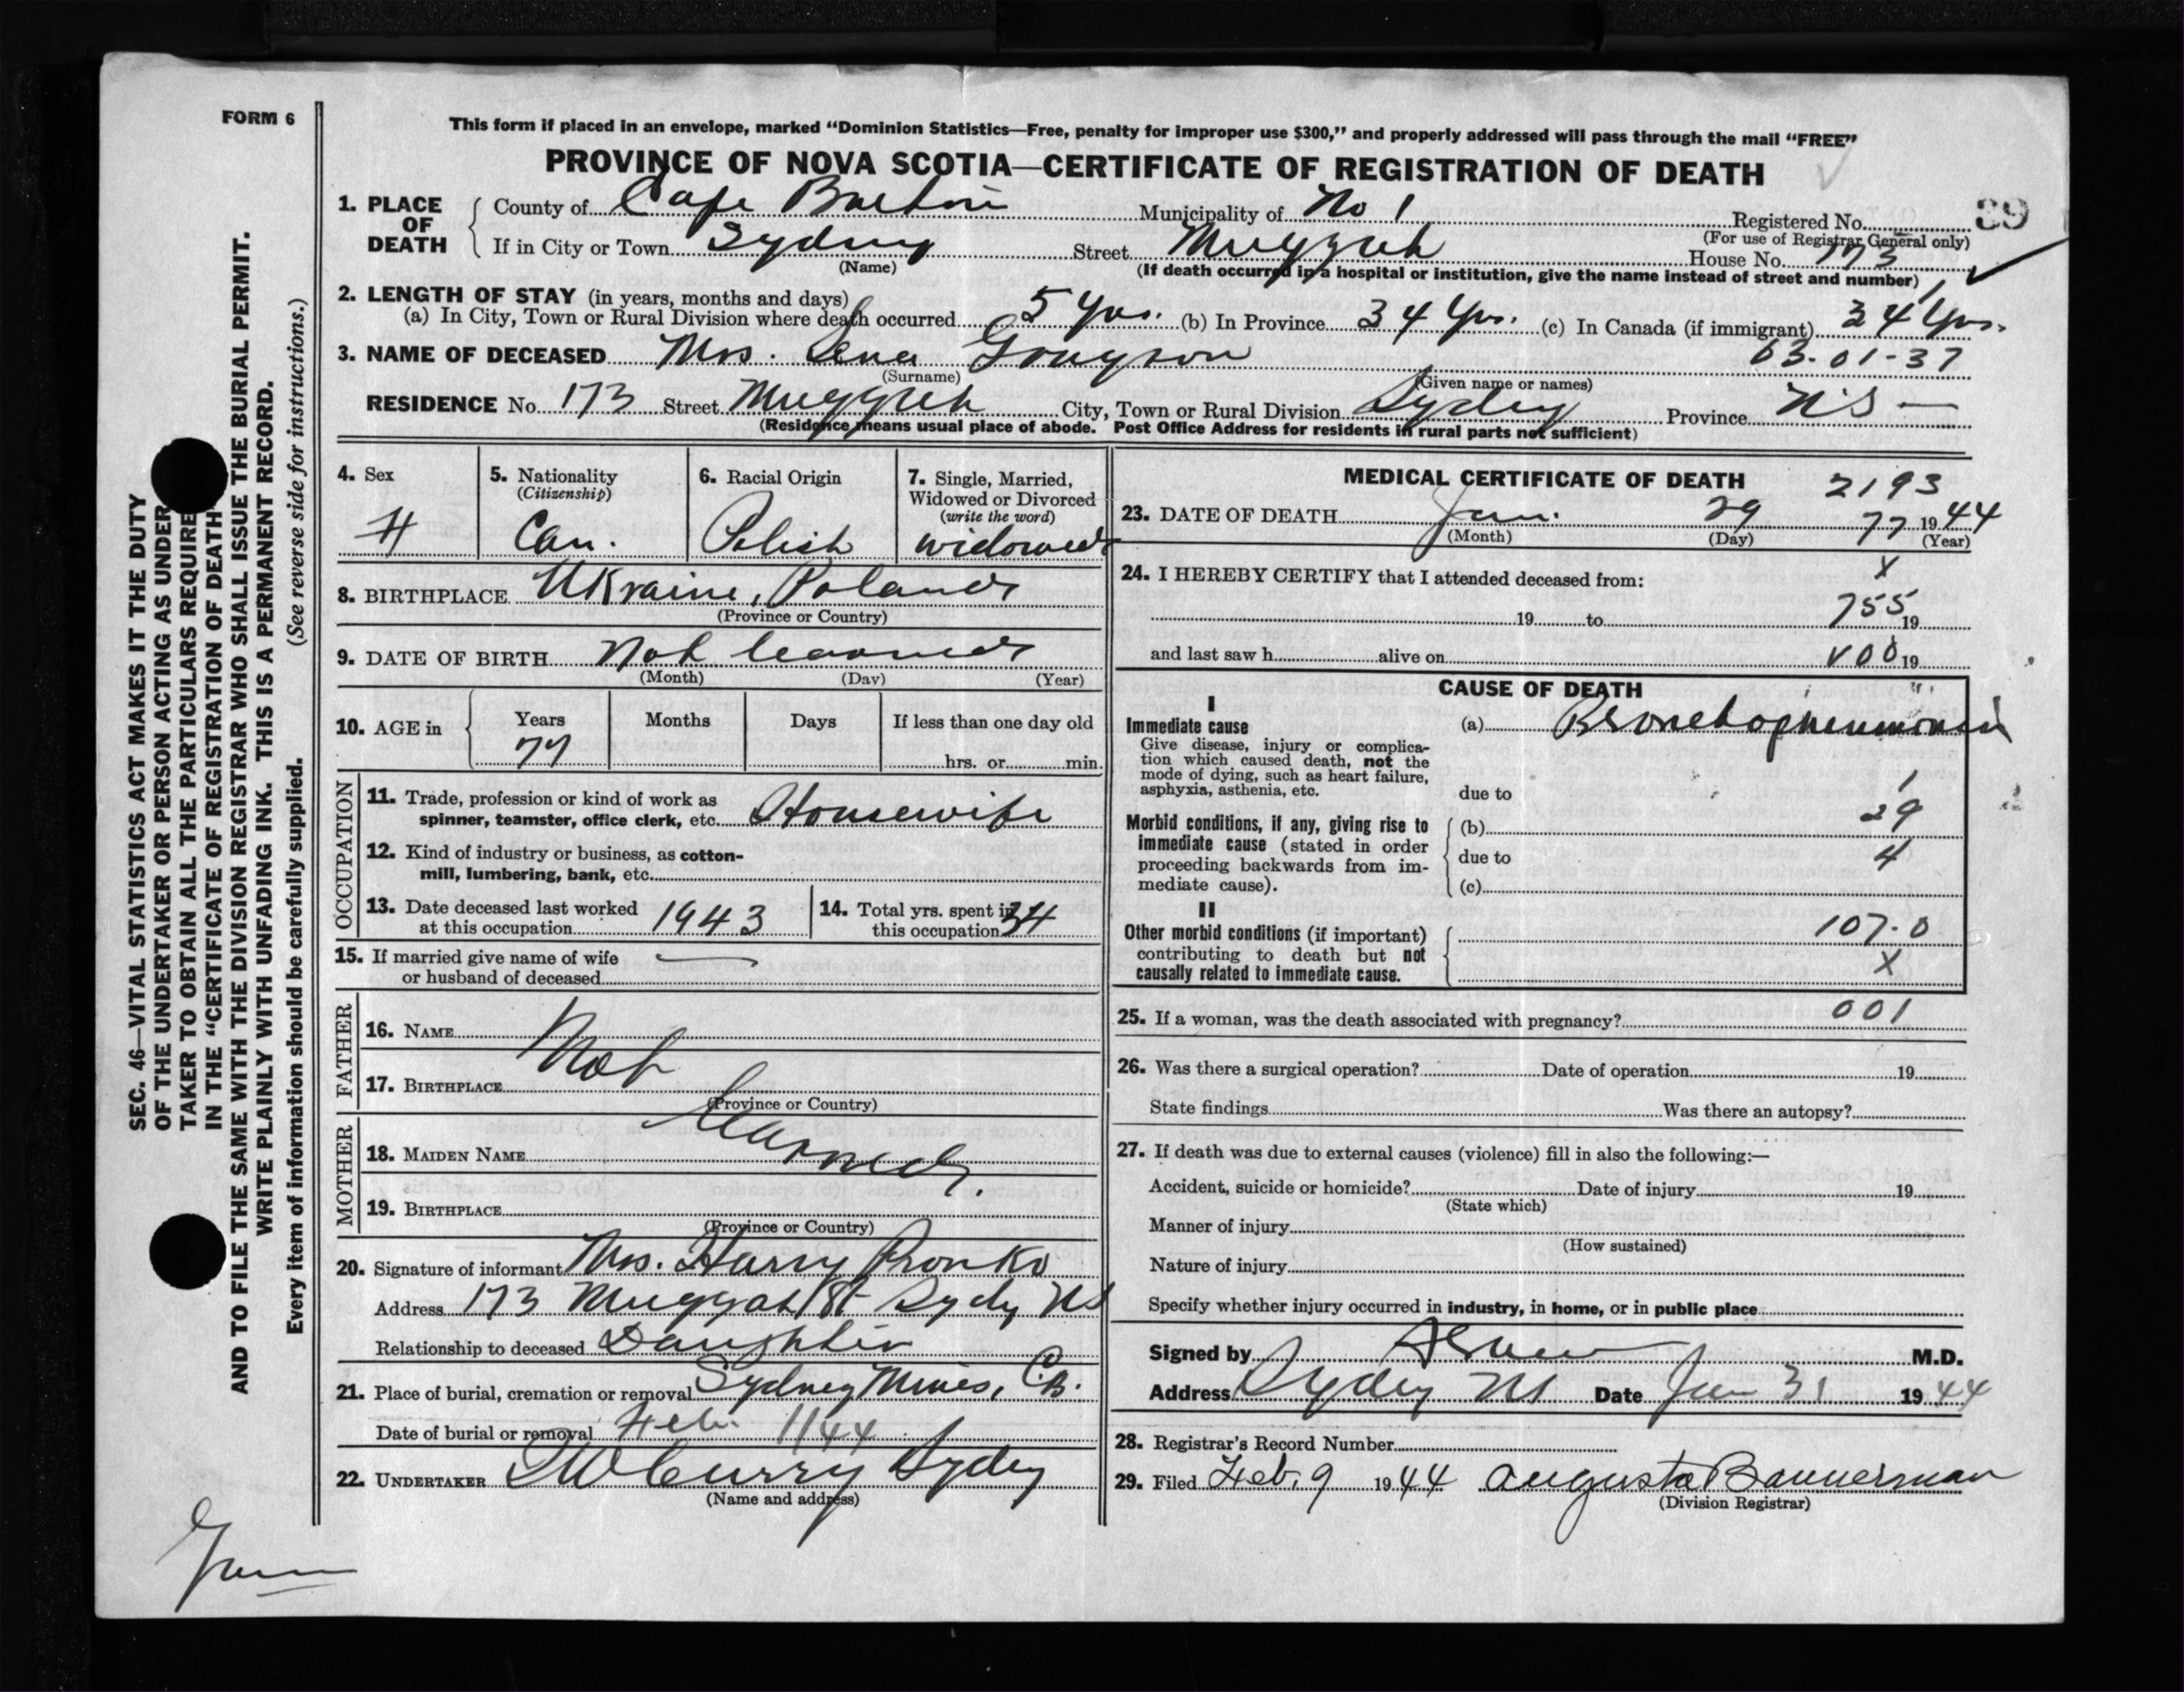 FORM 6
This form if placed in an envelope, marked “Dominion Statistics—Free, penalty for improper use $300,” and properly addressed will pass through the mail “FREE”
PROVINCE OF NOVA SCOTIA—CERTIFICATE OF REGISTRATION OF DEATH
39
1. PLACE OF DEATH County of Cape Breton Municipality of No 1 Registered No.
(For use of Registrar General only)
If in City or Town Sydney Street Muggah House No. 173
(Name) (If death occurred in a hospital or institution, give the name instead of street and number)
2. LENGTH OF STAY (in years, months and days)
(a) In City, Town or Rural Division where death occurred 5 Yrs. (b) In Province 34 Yrs. (c) In Canada (if immigrant) 34 Yrs.
3. NAME OF DECEASED Mrs. Lena 63-01-37
(Surname) (Given name or names)
RESIDENCE No. 173 Street Muggah City, Town or Rural Division Sydney Province N.S —
(Residence means usual place of abode. Post Office Address for residents in rural parts not sufficient)
4. Sex F
5. Nationality (Citizenship) Can.
6. Racial Origin Polish
7. Single, Married, Widowed or Divorced (write the word) widowed
8. BIRTHPLACE Ukraine, Poland
(Province or Country)
9. DATE OF BIRTH Not learned
(Month) (Day) (Year)
10. AGE in Years Months Days If less than one day old
77 hrs. or min.
OCCUPATION
11. Trade, profession or kind of work as
spinner, teamster, office clerk, etc. Housewife
12. Kind of industry or business, as cotton-
mill, lumbering, bank, etc.
13. Date deceased last worked
at this occupation 1943
14. Total yrs. spent in
this occupation 34
15. If married give name of wife
or husband of deceased —
FATHER
16. NAME Not
17. BIRTHPLACE
(Province or Country)
learned.
MOTHER
18. MAIDEN NAME
19. BIRTHPLACE
(Province or Country)
20. Signature of informant Mrs. Harry Pronko
Address 173 Muggah St Sydney NS
Relationship to deceased Daughter
21. Place of burial, cremation or removal Sydney Mines, C.B.
Date of burial or removal Feb. 1/44
22. UNDERTAKER Curry Sydney
(Name and address)
MEDICAL CERTIFICATE OF DEATH 2193
23. DATE OF DEATH Jan. 29 77 1944
(Month) (Day) (Year)
24. I HEREBY CERTIFY that I attended deceased from: X
19 to 755 19
and last saw h alive on 19
CAUSE OF DEATH
I
Immediate cause (a) Bronchopneumonia
Give disease, injury or complica-
tion which caused death, not the
mode of dying, such as heart failure,
asphyxia, asthenia, etc.
due to 1
Morbid conditions, if any, giving rise to (b) 29
immediate cause (stated in order due to 4
proceeding backwards from im-
mediate cause). (c)
II
Other morbid conditions (if important) 107.0
contributing to death but not
causally related to immediate cause. X
25. If a woman, was the death associated with pregnancy? 001
26. Was there a surgical operation? Date of operation 19
State findings Was there an autopsy?
27. If death was due to external causes (violence) fill in also the following:—
Accident, suicide or homicide? Date of injury 19
(State which)
Manner of injury
(How sustained)
Nature of injury
Specify whether injury occurred in industry, in home, or in public place
Signed by M.D.
Address Sydney NS Date Jan 31 1944
28. Registrar's Record Number
29. Filed Feb. 9 1944 Augusta Bannerman
(Division Registrar)
SEC. 46—VITAL STATISTICS ACT MAKES IT THE DUTY
OF THE UNDERTAKER OR PERSON ACTING AS UNDER
TAKER TO OBTAIN ALL THE PARTICULARS REQUIRE
IN THE “CERTIFICATE OF REGISTRATION OF DEATH”
AND TO FILE THE SAME WITH THE DIVISION REGISTRAR WHO SHALL ISSUE THE BURIAL PERMIT.
WRITE PLAINLY WITH UNFADING INK. THIS IS A PERMANENT RECORD.
Every item of information should be carefully supplied. (See reverse side for instructions.)